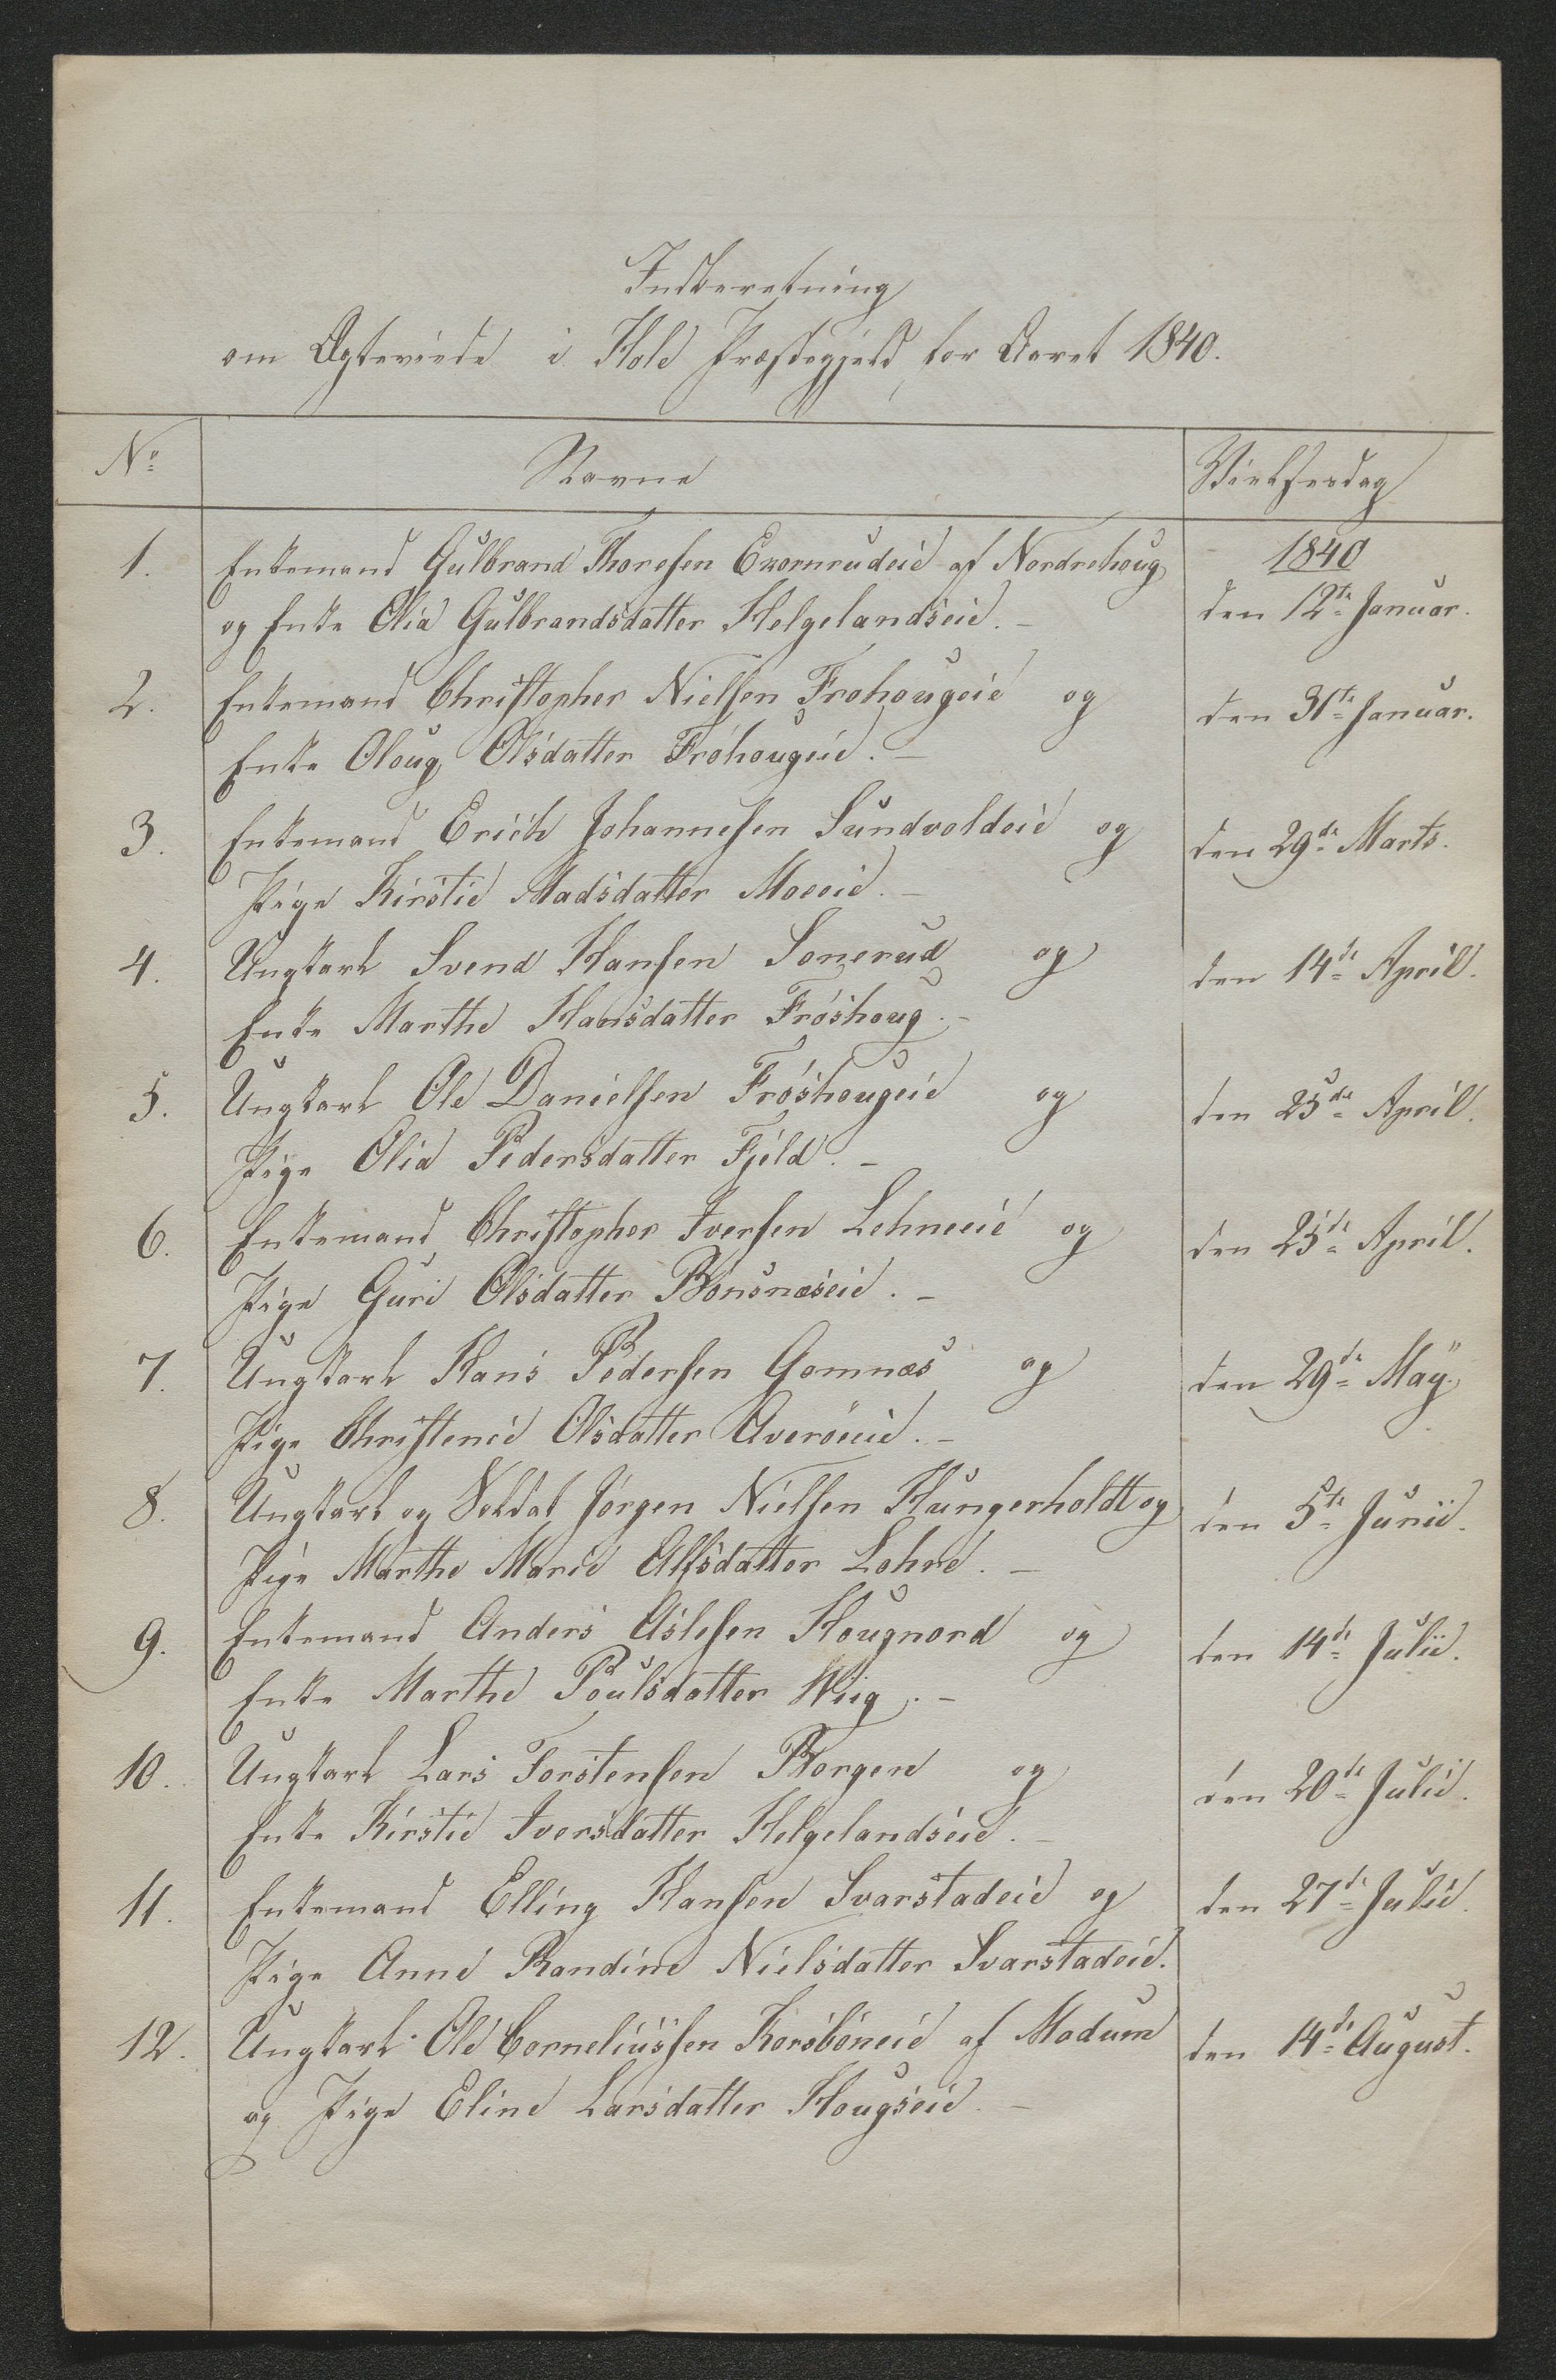 Indberetning
om Ægteviede i Hole Præstegjeld for Aaret 1840.
No Navne Vielsesdag
1. Enkemand Gulbrand Thoresen Exornrudeie af Nordrehoug 1840
og Enke Olia Gulbrandsdatter Helgelandseie. - den 12te Januar.
2. Enkemand Christopher Nielsen Frøhougeie og den 31te Januar.
Enke Oloug Olsdatter Frøhougeie. -
3. Enkemand Erich Johannesen Sundvoldeie og den 29de Marts.
Pige Kirstie Madsdatter Moeeie. -
4. Ungkarl Svend Hansen Sonerud og den 14de April.
Enke Marthe Hansdatter Frøshoug. -
5. Ungkarl Ole Danielsen Frøshougeie og den 25de April.
Pige Olia Pedersdatter Fjeld. -
6. Enkemand Christopher Iversen Lehneeie og den 25de April.
Pige Guri Olsdatter Bønsnæseie. -
7. Ungkarl Hans Pedersen Gomnæs og den 29de Maÿ.
Pige Christence Olsdatter Averøeie. -
8. Ungkarl og Soldat Jørgen Nielsen Hungerholdt og den 5te Junii.
Pige Marthe Marie Alfsdatter Lohre. -
9. Enkemand Anders Aslesen Hougnord og den 14de Julii.
Enke Marthe Poulsdatter Wiig. -
10. Ungkarl Lars Torstensen Borgen og den 20de Julii.
Enke Kirstie Iversdatter Helgelandseie. -
11. Enkemand Elling Hansen Svarstadeie og den 27de Julii.
Pige Anne Randine Nielsdatter Svarstadeie.
12. Ungkarl Ole Corneliussen Korsbøneie af Modum den 14de August.
og Pige Eline Larsdatter Hougseie. -